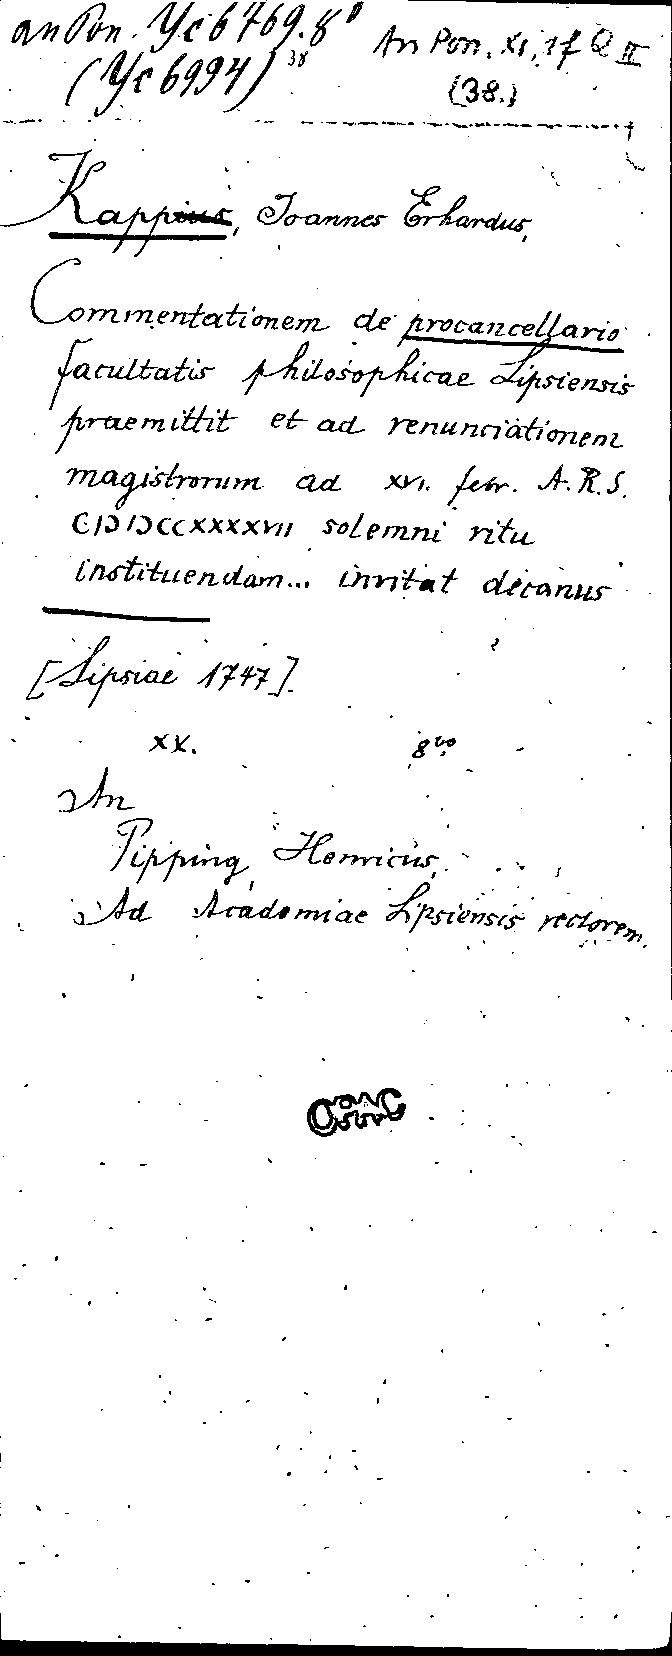 an Pon. Yc 6769. 8°
(Yc 6994) 38
An Pon. XI, 1f Q II
(38.)
Kappius, Joannes Erhardus,
Commentationem de procancellario
facultatis philosophicae Lipsiensis
praemittit et ad renunciationem
magistrorum ad XVI. febr. A.R.S.
CIƆIƆCCXXXXVII solemni ritu
instituendam... invitat decanus
[Lipsiae 1747].
XX. 8vo
An
Pipping, Henricus,
Ad Academiae Lipsiensis rectorem.